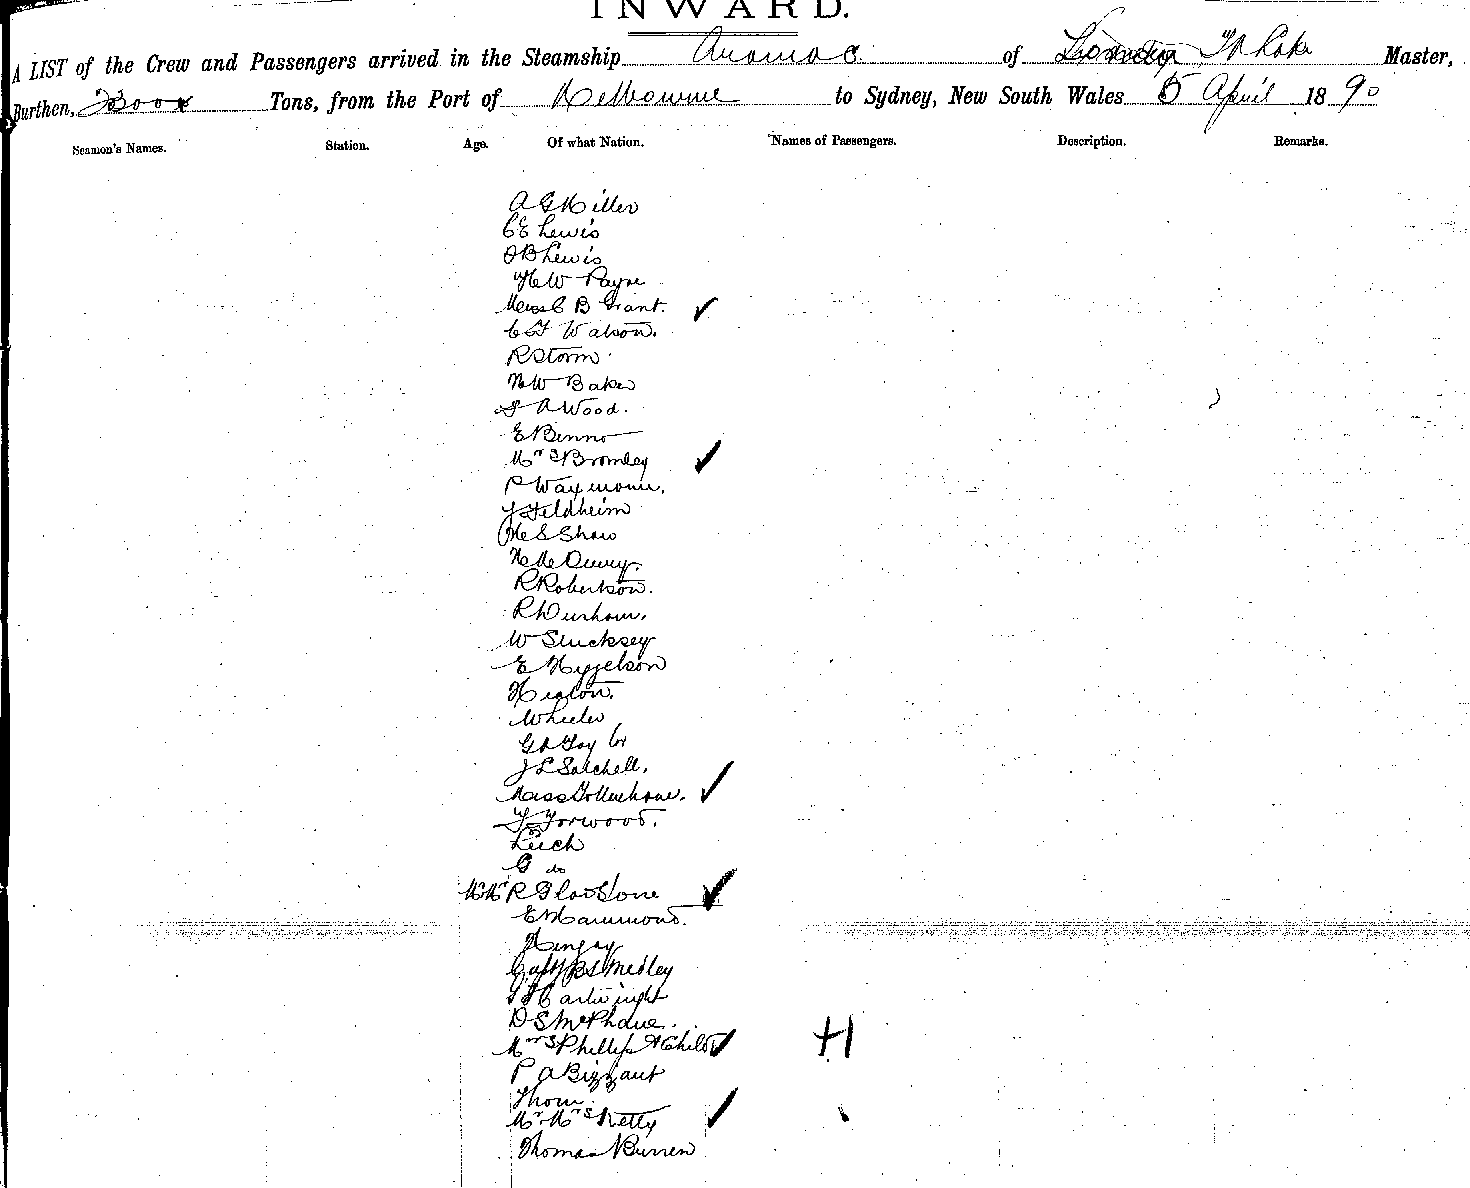 INWARD.
A LIST of the Crew and Passengers arrived in the Steamship Aramac of Master,
Burthen, Tons, from the Port of Melbourne to Sydney, New South Wales 5 April 1890
Seamen's Names. Station. Age. Of what Nation. Names of Passengers. Description. Remarks.
A G Miller
C E Lewis
J B Lewis
H W Payne
Miss C B Grant.
C F Watson.
R Storm
H W Baker
S A Wood.
E Benno
Mrs Bromley
P Waxmann.
J Feldheim
S Shaw
R Robertson.
R Durham.
W Stucksey
E Higgelson
Wheeler
J L Satchell.
Miss
F Forwood.
Leich
G do
R Gladstone
E Hammond.
Hingay
Capt Smedley
Cartwright
D S McPhaue.
Mrs Phillips & Child
H
P A Bizzant
Thom
Mr Mrs Ketty
Thomas Burren